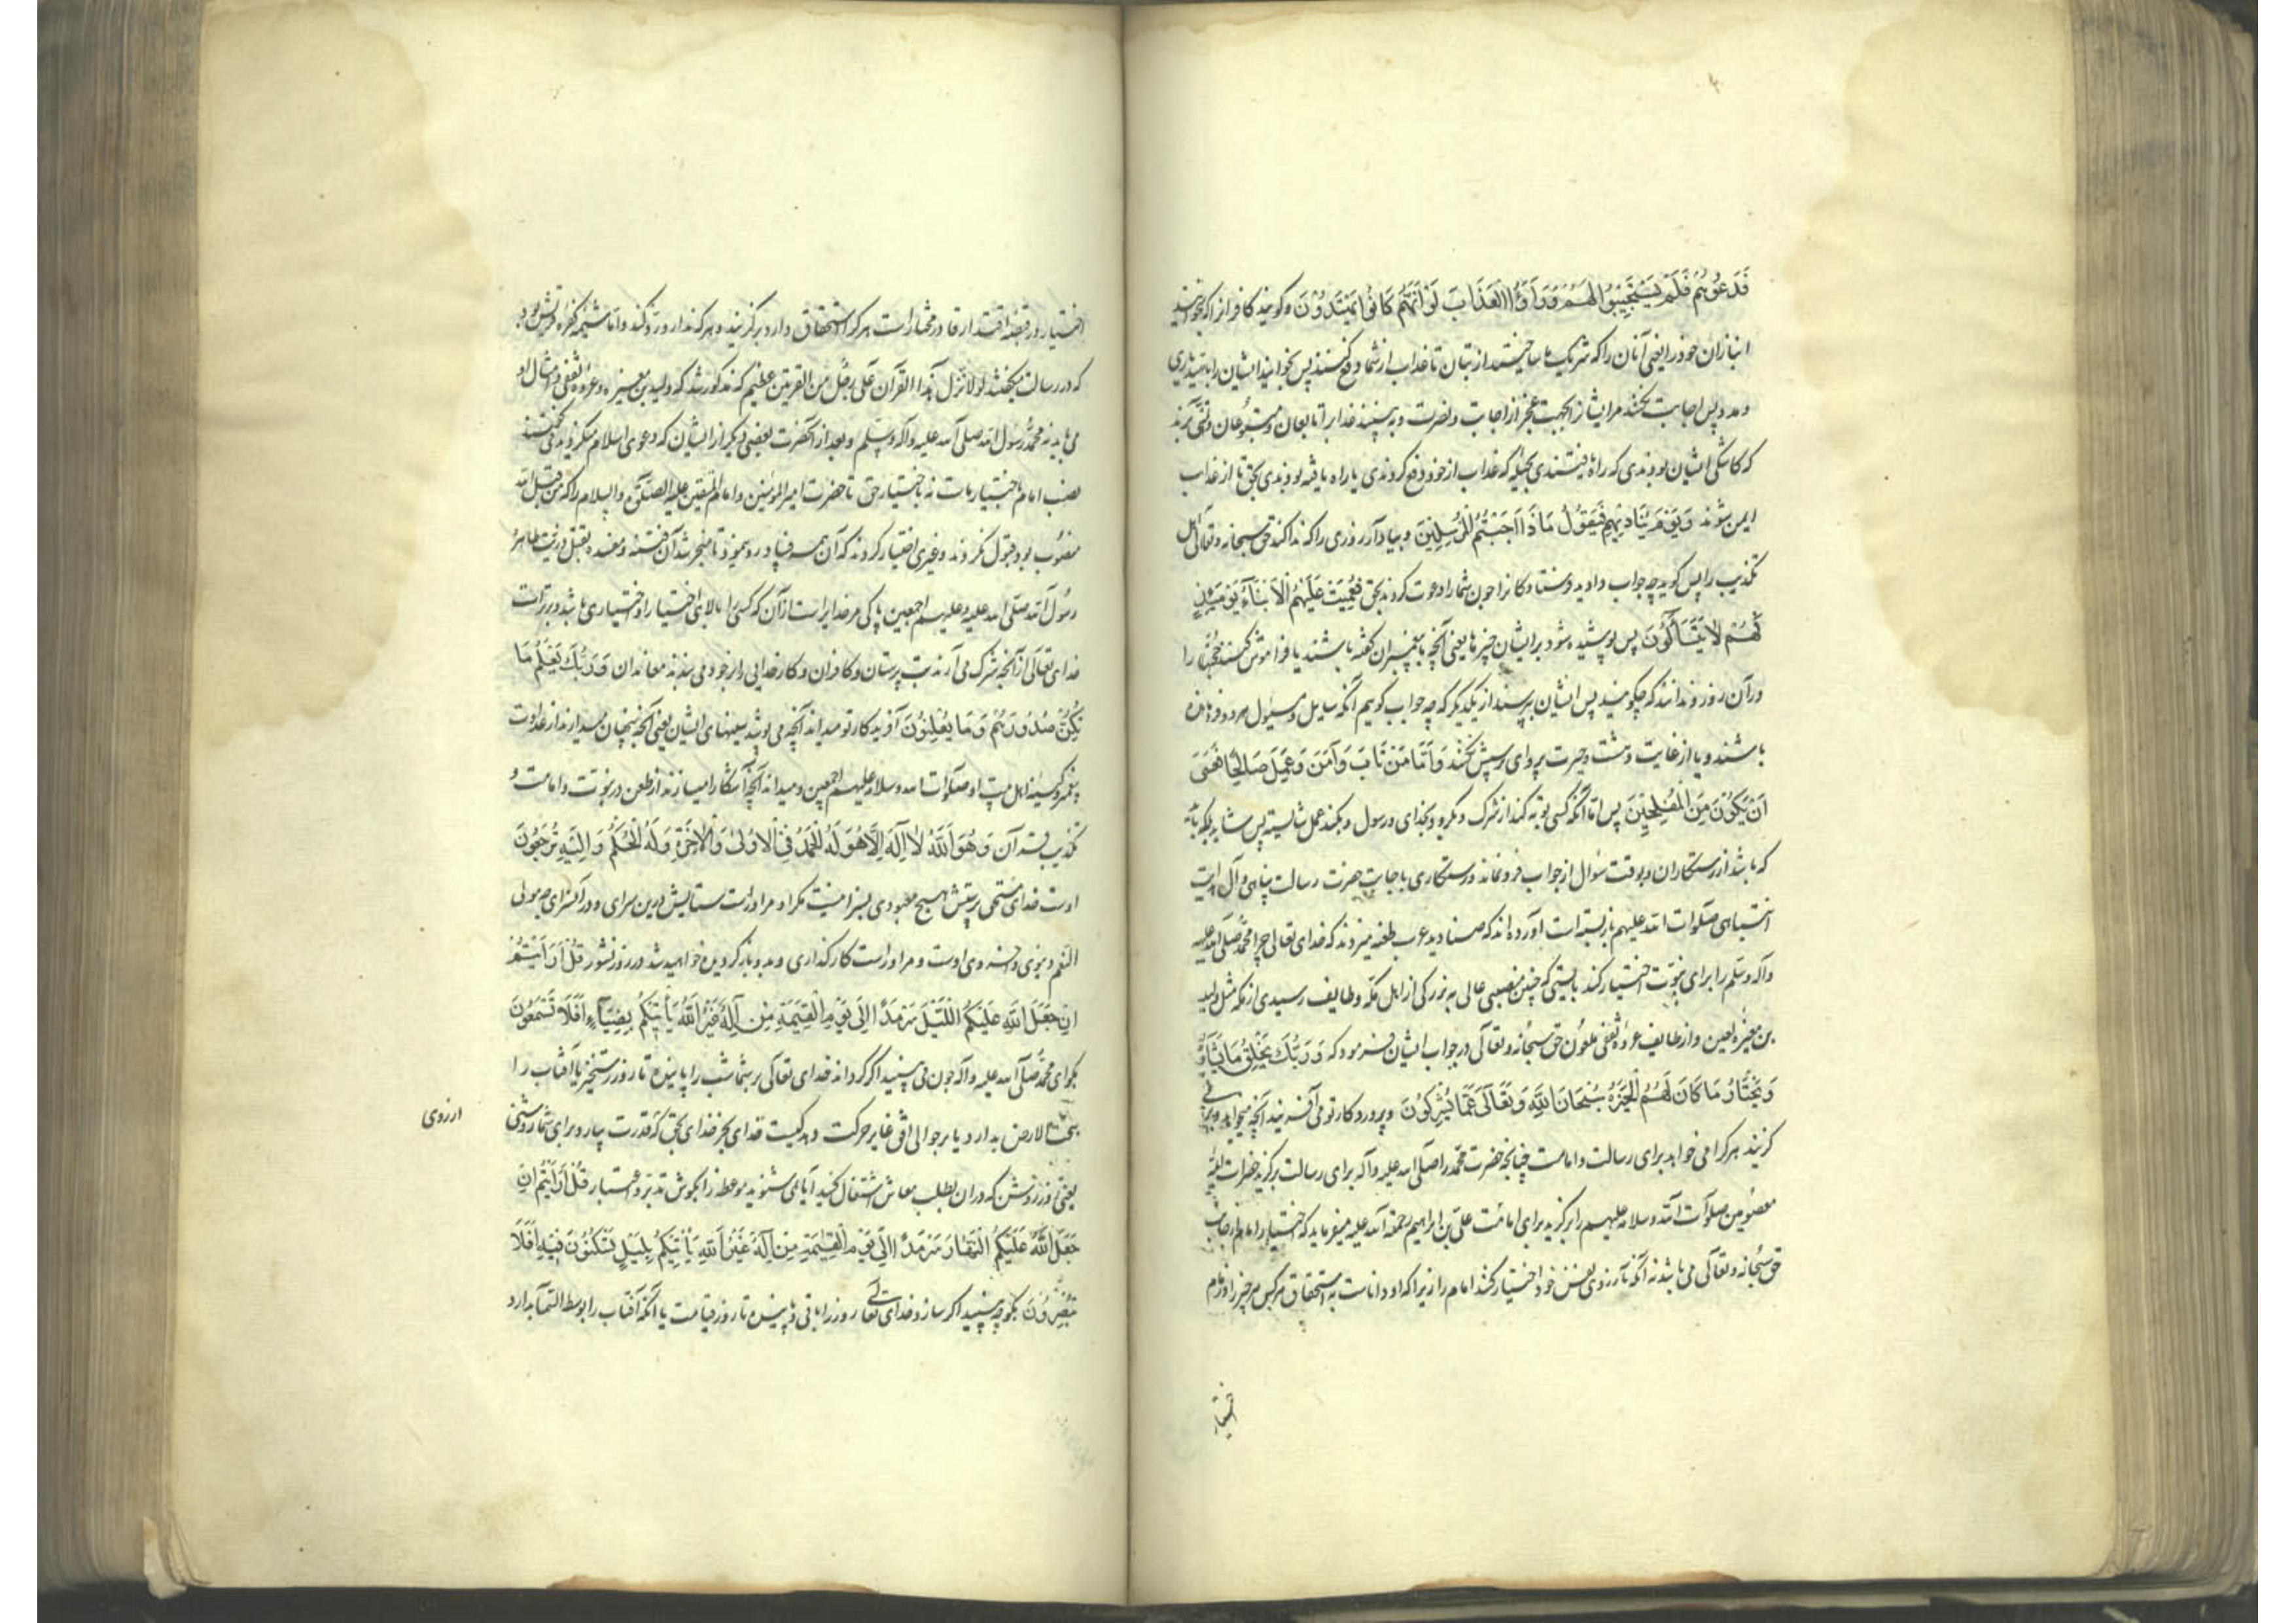 فَدَعَوْهُمْ فَلَمْ يَسْتَجِيبُوا لَهُمْ وَرَأَوُا الْعَذَابَ لَوْ أَنَّهُمْ كَانُوا يَهْتَدُونَ وگویند کافرانرا که بخوانید
انبازان خود را یعنی آنان را که شریک ما ساختید از بتان تا عذاب از شما دفع کنند پس بخوانند ایشان را بامید یاری
و مدد پس اجابت نکنند مر ایشانرا بجهت عجز از اجابت و نصرت و به بینند عذاب را تابعان و متبوعان و تمنی برند
که کاشکی ایشان بودندی که راه یافتندی بحیله که عذاب از خود دفع کردندی یا راه یافته بودندی بحق تا از عذاب
ایمن شوند وَيَوْمَ يُنَادِيهِمْ فَيَقُولُ مَاذَا أَجَبْتُمُ الْمُرْسَلِينَ و بیاد آر روزی را که ندا کند حق سبحانه و تعالی اهل
تکذیب را پس گوید چه جواب دادید فرستادگانرا چون شما را دعوت کردند بحق فَعَمِيَتْ عَلَيْهِمُ الْأَنْبَاءُ يَوْمَئِذٍ
فَهُمْ لَا يَتَسَاءَلُونَ پس پوشیده شود بر ایشان چیزها یعنی آنچه با پیغمبران گفته باشند یا فراموش کنند حجتها را
در آن روز و ندانند که چگویند پس ایشان نپرسند از یکدیگر که چه جواب گوییم آنکه سایل و مسئول هر دو فرومانده
باشند و یا از غایت دهشت و حیرت پروای پرسش نکنند فَأَمَّا مَنْ تَابَ وَآمَنَ وَعَمِلَ صَالِحًا فَعَسَى
أَنْ يَكُونَ مِنَ الْمُفْلِحِينَ پس اما آنکه کسی توبه کند از شرک و بگرود بخدای و رسول و بکند عمل شایسته پس شاید
که باشد از رستگاران و بوقت سؤال از جواب فرو نماند و رستگاری باجابت حضرت رسالت پناهی و آل
صلوات الله علیهم باز بسته است آورده‌اند که صنادید عرب طعنه میزدند که خدای تعالی چرا محمد صلی الله علیه
وآله وسلم را برای نبوت اختیار کند بایستی که چنین منصبی عالی به بزرگی از اهل مکه و طایف رسیدی از مکه مثل ولید
بن مغیره لعین و از طایف عروه ثقفی ملعون حق سبحانه و تعالی در جواب ایشان فرمود که وَرَبُّكَ يَخْلُقُ مَا يَشَاءُ
وَيَخْتَارُ مَا كَانَ لَهُمُ الْخِيَرَةُ سُبْحَانَ اللَّهِ وَتَعَالَى عَمَّا يُشْرِكُونَ و پروردگار تو می آفریند آنچه میخواهد و بر می
گزیند هر کرا می خواهد برای رسالت و امامت چنانچه حضرت محمد را صلی الله علیه وآله برای رسالت برگزید حضرات ائمه
معصومین صلوات الله و سلامه علیهم را برگزید برای امامت علی بن ابراهیم رحمة الله علیه میفرماید که اختیار امام از جانب
حق سبحانه و تعالی می باشد نه آنکه بآرزوی نفس خود اختیار کنند امام را زیرا که او داناست به استحقاق هر کس هر چیز را و زمام
اختیار
اختیار در قبضه اقتدار قادر مختار است هر کرا استحقاق دارد برگزیند و هر که ندارد رد کند و اما شیمه کفره قریش بود
که در رسالت میگفتند لولا نزل هذا القرآن علی رجل من القریتین عظیم که مذکور شد که ولید بن مغیره و عروه ثقفی و امثال او
می باید نه محمد رسول الله صلی الله علیه وآله وسلم و بعد از آنحضرت بعضی دیگر از ایشان که دعوی اسلام میکردند می گفتند
نصب امام باختیار مات نه باختیار حق تا حضرت امیر المؤمنین و امام المتقین علیه الصلوة والسلام را که من قبل الله
منصوب بود قبول نکردند و غیری اختیار کردند که آن همه فساد روی نمود تا منجر شد آن فتنه و مفسده بقتل ذریت طاهره
رسول الله صلی الله علیه و علیهم اجمعین پاکی مر خدایراست از آن که کسی را بالای اختیار او اختیاری باشد و برتر است
خدای تعالی از آنچه شرک می آرند بت پرستان و کافران و کار خدایی را بر خود می بندند معاندان وَرَبُّكَ يَعْلَمُ مَا
تُكِنُّ صُدُورُهُمْ وَمَا يُعْلِنُونَ آفریدگار تو میداند آنچه می پوشد سینهای ایشان یعنی آنچه پنهان میدارند از عداوت
پیغمبر و کینه اهل بیت او صلوات الله و سلامه علیهم اجمعین و میداند آنچه آشکارا میسازند از طعن در نبوت و امامت و
تکذیب قرآن وَهُوَ اللَّهُ لَا إِلَهَ إِلَّا هُوَ لَهُ الْحَمْدُ فِي الْأُولَى وَالْآخِرَةِ وَلَهُ الْحُكْمُ وَإِلَيْهِ تُرْجَعُونَ
اوست خدای مستحق پرستش هیچ معبودی بسزا نیست مگر او مر او راست ستایش درین سرای و در آن سرای چه مولی
النعم دنیوی و اخروی اوست و مر او راست کارگذاری و بدو باز گردیده خواهید شد در روز نشور قُلْ أَرَأَيْتُمْ
إِنْ جَعَلَ اللَّهُ عَلَيْكُمُ اللَّيْلَ سَرْمَدًا إِلَى يَوْمِ الْقِيَمَةِ مِنْ إِلَهٌ غَيْرُ اللَّهِ يَأْتِيكُمْ بِضِيَاءٍ أَفَلَا تَسْمَعُونَ
بگو ای محمد صلی الله علیه وآله چون می بینید اگر گرداند خدای تعالی بر شما شب را پاینده تا روز رستخیز یا آفتاب را
تحت الارض بدارد یا بر حوالی افق غایر حرکت دهد کیست خدای بجز خدای بحق که قدرت بیارد برای شما روشنی
ارزوی
یعنی روز روشن که در ان بطلب معاش اشتغال کنید آیا نمی شنوید موعظه را بگوش تدبر و اعتبار قُلْ أَرَأَيْتُمْ إِنْ
جَعَلَ اللَّهُ عَلَيْكُمُ النَّهَارَ سَرْمَدًا إِلَى يَوْمِ الْقِيمَةِ مِنْ إِلَهٌ غَيْرُ اللَّهِ يَأْتِيكُمْ بِلَيْلٍ تَسْكُنُونَ فِيهِ أَفَلَا
تُبْصِرُونَ بگو چه بینید اگر سازد خدای تعالی روز را باقی و پاینده تا روز قیامت یا آنکه آفتاب را بوسط السماء بدارد